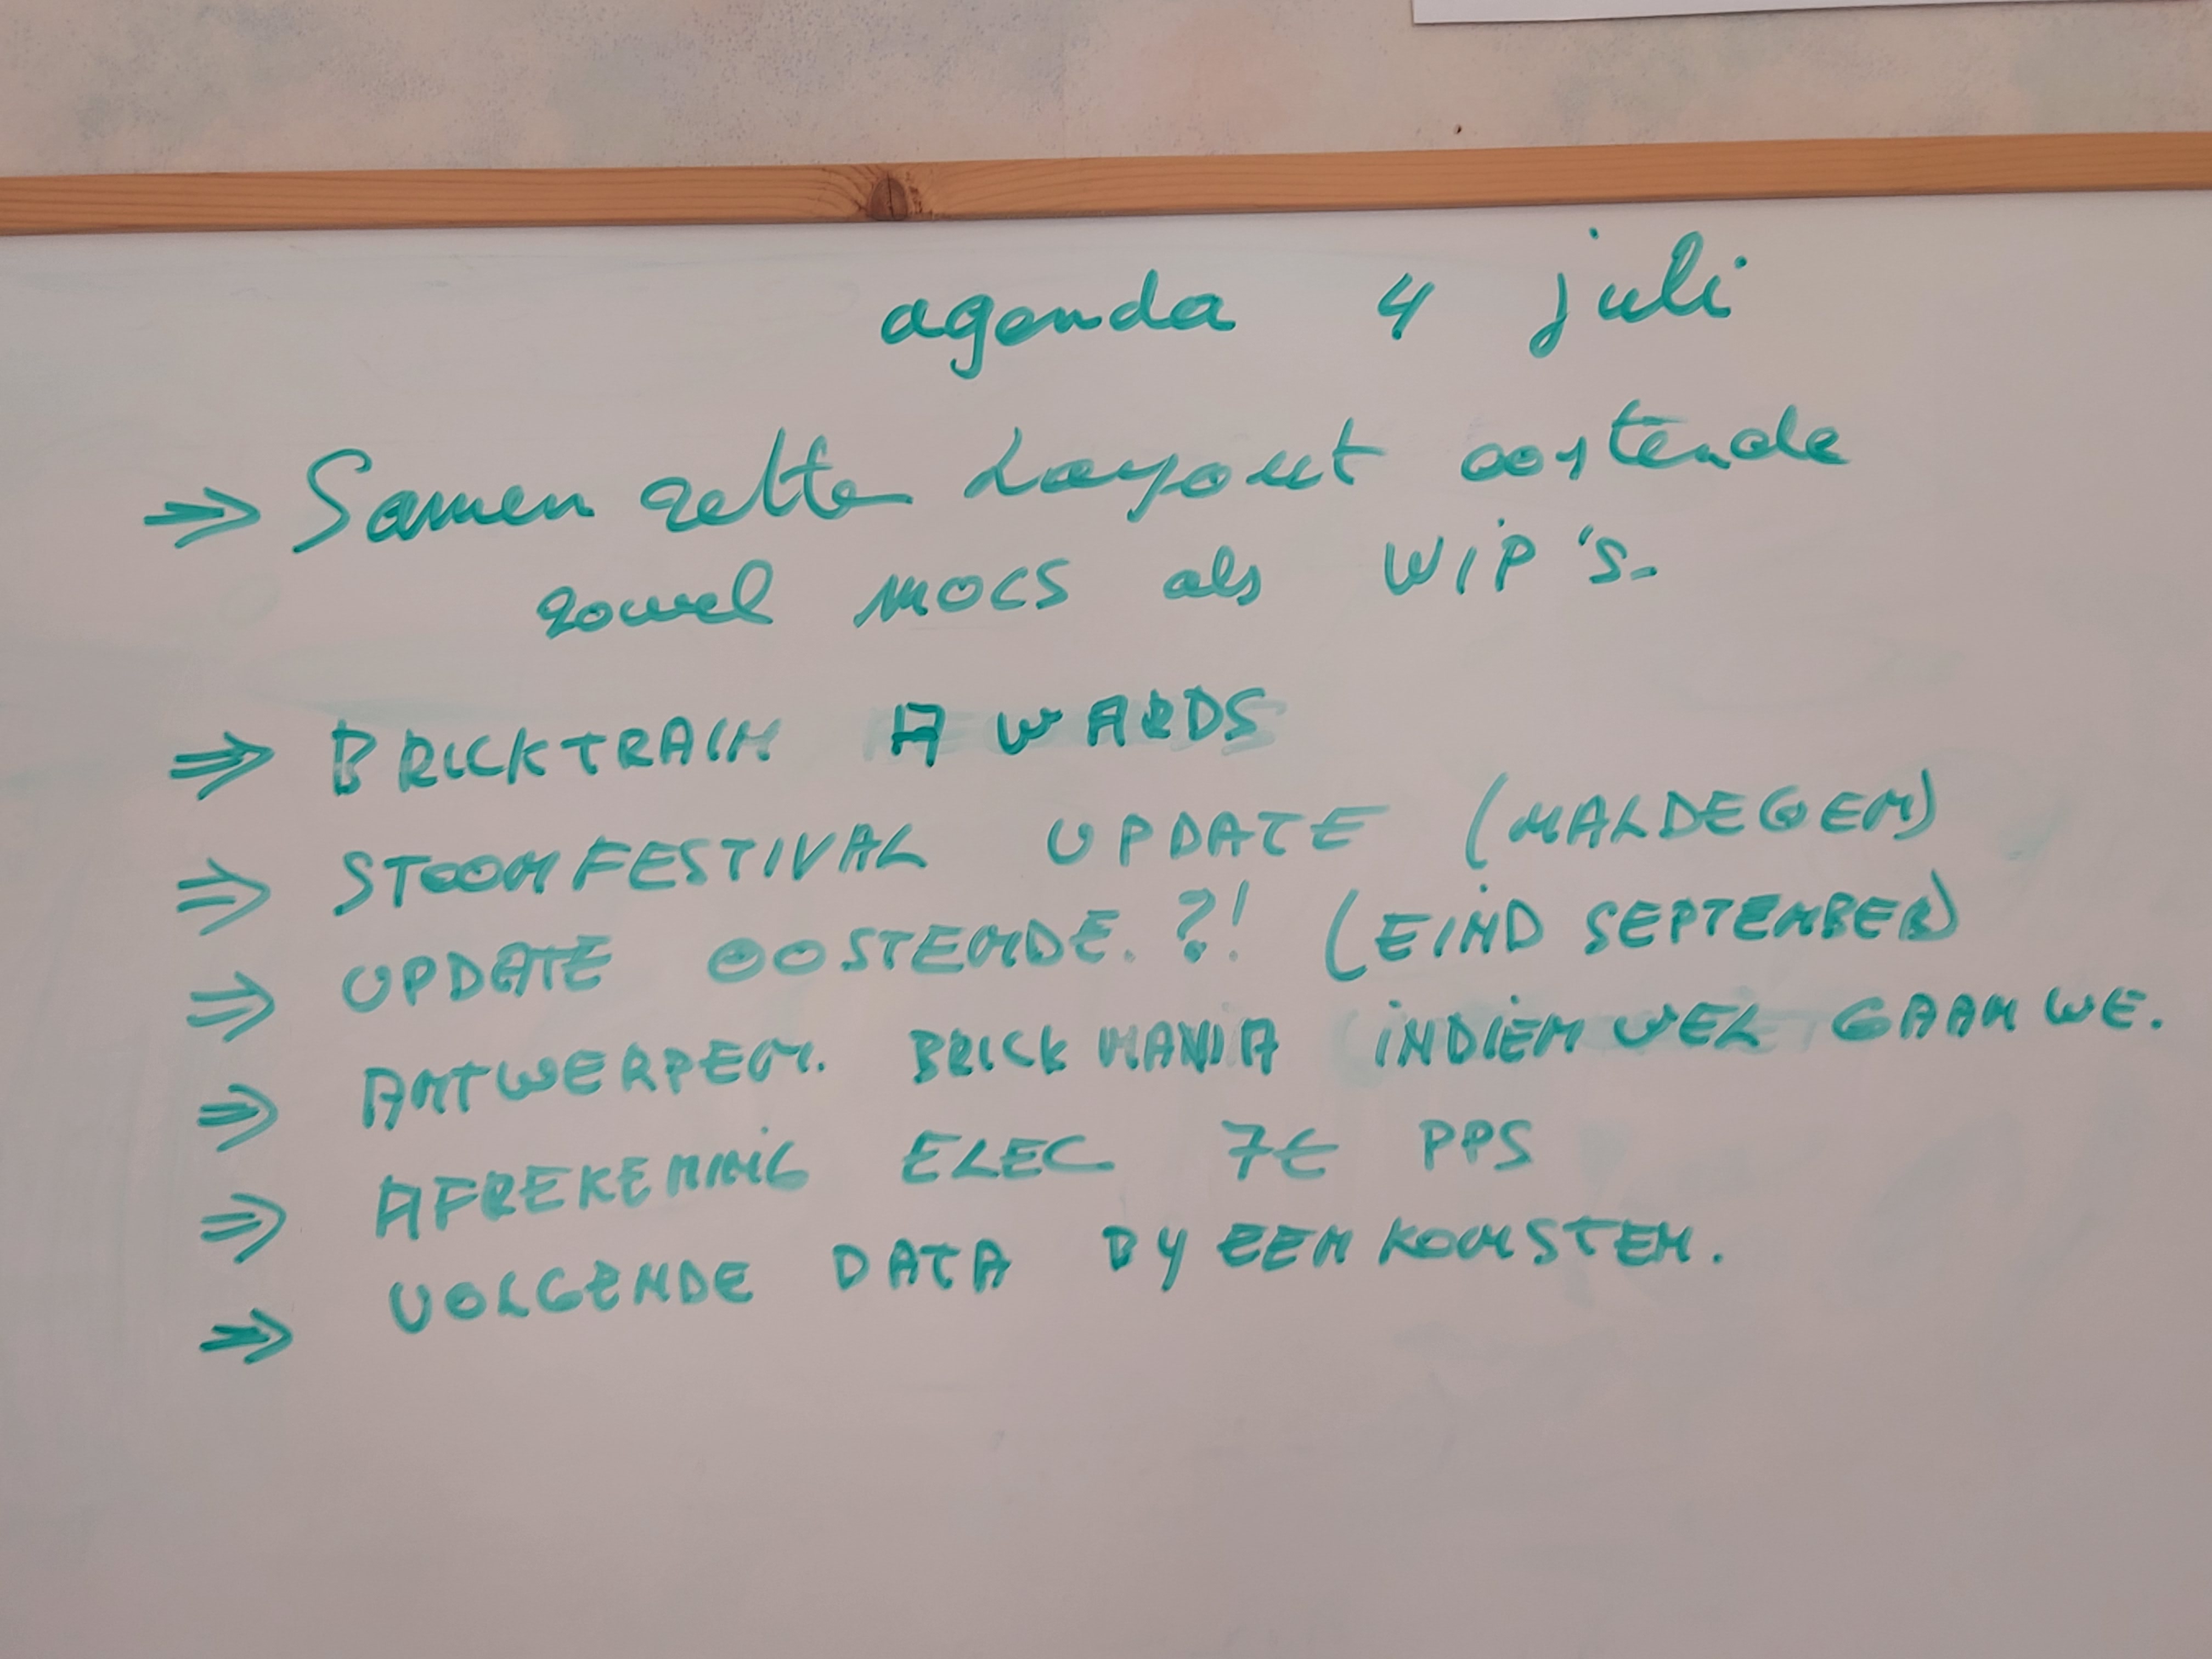 agenda 4 juli
⇒ Samen zetten Layout oostende
zowel MOCS als WIP's.
⇒ BRICKTRAIN AWARDS
⇒ STOOMFESTIVAL UPDATE (MALDEGEM)
⇒ UPDATE OOSTENDE.?! (EIND SEPTEMBER)
⇒ ANTWERPEN. BRICKMANIA INDIEN WEL GAAN WE.
⇒ AFREKENING ELEC 7€ PPS
⇒ VOLGENDE DATA BYEENKOMSTEN.